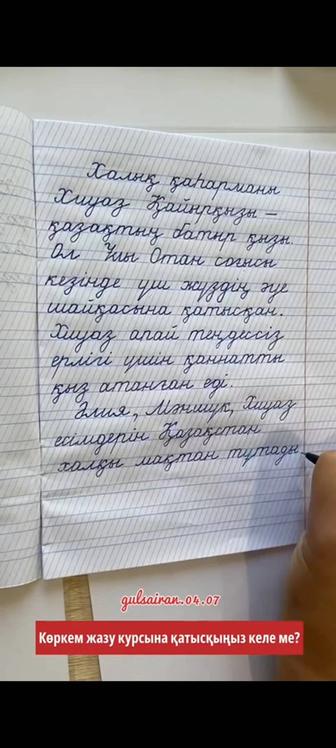 Халық қаһарманы
Хиуаз Қайырқызы –
қазақтың батыр қызы.
Ол Ұлы Отан соғысы
кезінде үш жүздің әуе
шайқасына қатысқан.
Хиуаз апай теңдессіз
ерлігі үшін қаннатты
қыз атанған еді.
Әлия, Мәншүк, Хиуаз
есімдерін Қазақстан
халқы мақтан тұтады
gulsairan.04.07
Көркем жазу курсына қатысқыңыз келе ме?